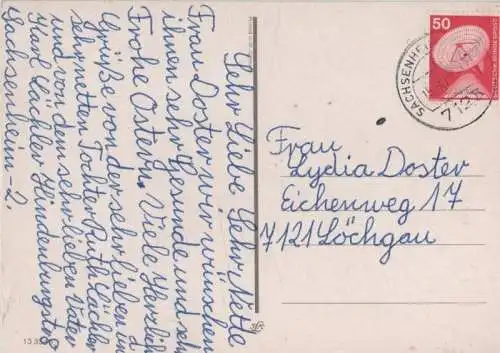 Sehr Liebe Sehr Nette
Frau Doster wir wünschen
ihnen sehr Gesunde und sehr
Frohe Ostern. Viele Herzlich
Grüße von der sehr lieben und
sehr netten Tochter Ruth Lächler
und von dem sehr lieben Vater
Karl Lächler Hindenburgstr
Sachsenheim-2.
50
SACHSENHEIM
712
Frau
Lydia Doster
Eichenweg 17
7121 Löchgau